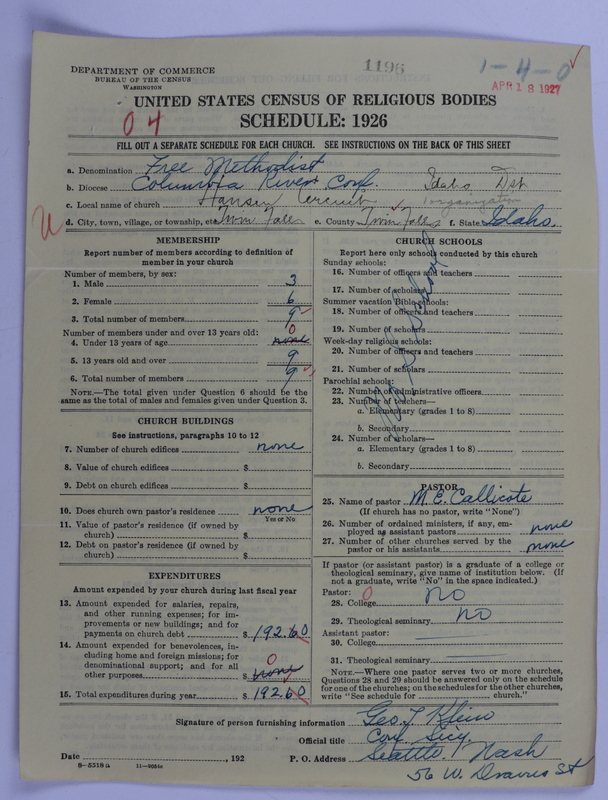 1196
1-4-0
APR 18 1927
DEPARTMENT OF COMMERCE
BUREAU OF THE CENSUS
WASHINGTON
UNITED STATES CENSUS OF RELIGIOUS BODIES
SCHEDULE: 1926
04
FILL OUT A SEPARATE SCHEDULE FOR EACH CHURCH. SEE INSTRUCTIONS ON THE BACK OF THIS SHEET
a. Denomination Free Methodist
b. Diocese Columbia River Conf. Idaho Dst
c. Local name of church Hansen Circuit organization
d. City, town, village, or township, etc. Twin Falls e. County Twin Falls f. State Idaho.
MEMBERSHIP
Report number of members according to definition of
member in your church
Number of members, by sex:
1. Male 3
2. Female 6
3. Total number of members 9
Number of members under and over 13 years old: 0
4. Under 13 years of age none
5. 13 years old and over 9
6. Total number of members 9
NOTE.—The total given under Question 6 should be the
same as the total of males and females given under Question 3.
CHURCH BUILDINGS
See instructions, paragraphs 10 to 12
7. Number of church edifices none
8. Value of church edifices $
9. Debt on church edifices $
10. Does church own pastor's residence none
Yes or No
11. Value of pastor's residence (if owned by
church) $
12. Debt on pastor's residence (if owned by
church) $
EXPENDITURES
Amount expended by your church during last fiscal year
13. Amount expended for salaries, repairs,
and other running expenses; for im-
provements or new buildings; and for
payments on church debt $ 192.60
14. Amount expended for benevolences, in-
cluding home and foreign missions; for
denominational support; and for all 0
other purposes $ none
15. Total expenditures during year $ 192.60
CHURCH SCHOOLS
Report here only schools conducted by this church
Sunday schools:
16. Number of officers and teachers
17. Number of scholars
Summer vacation Bible schools:
18. Number of officers and teachers
19. Number of scholars
Week-day religious schools:
20. Number of officers and teachers
21. Number of scholars
Parochial schools:
22. Number of administrative officers
23. Number of teachers—
a. Elementary (grades 1 to 8)
b. Secondary
24. Number of scholars—
a. Elementary (grades 1 to 8)
b. Secondary
PASTOR
25. Name of pastor M. E. Callicote
(If church has no pastor, write "None")
26. Number of ordained ministers, if any, em-
ployed as assistant pastors none
27. Number of other churches served by the
pastor or his assistants none
If pastor (or assistant pastor) is a graduate of a college or
theological seminary, give name of institution below. (If
not a graduate, write "No" in the space indicated.)
Pastor: 0
28. College no
29. Theological seminary no
Assistant pastor:
30. College
31. Theological seminary
NOTE.—Where one pastor serves two or more churches,
Questions 28 and 29 should be answered only on the schedule
for one of the churches; on the schedules for the other churches,
write "See schedule for church."
Signature of person furnishing information Geo. T.
Official title Conf Secy.
Date , 192 P. O. Address Seattle. Wash
8-5318a 56 W. Dravus St